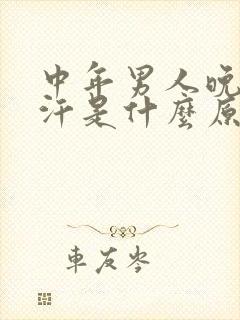 中年男人晚
汗是什麼原
車友岑